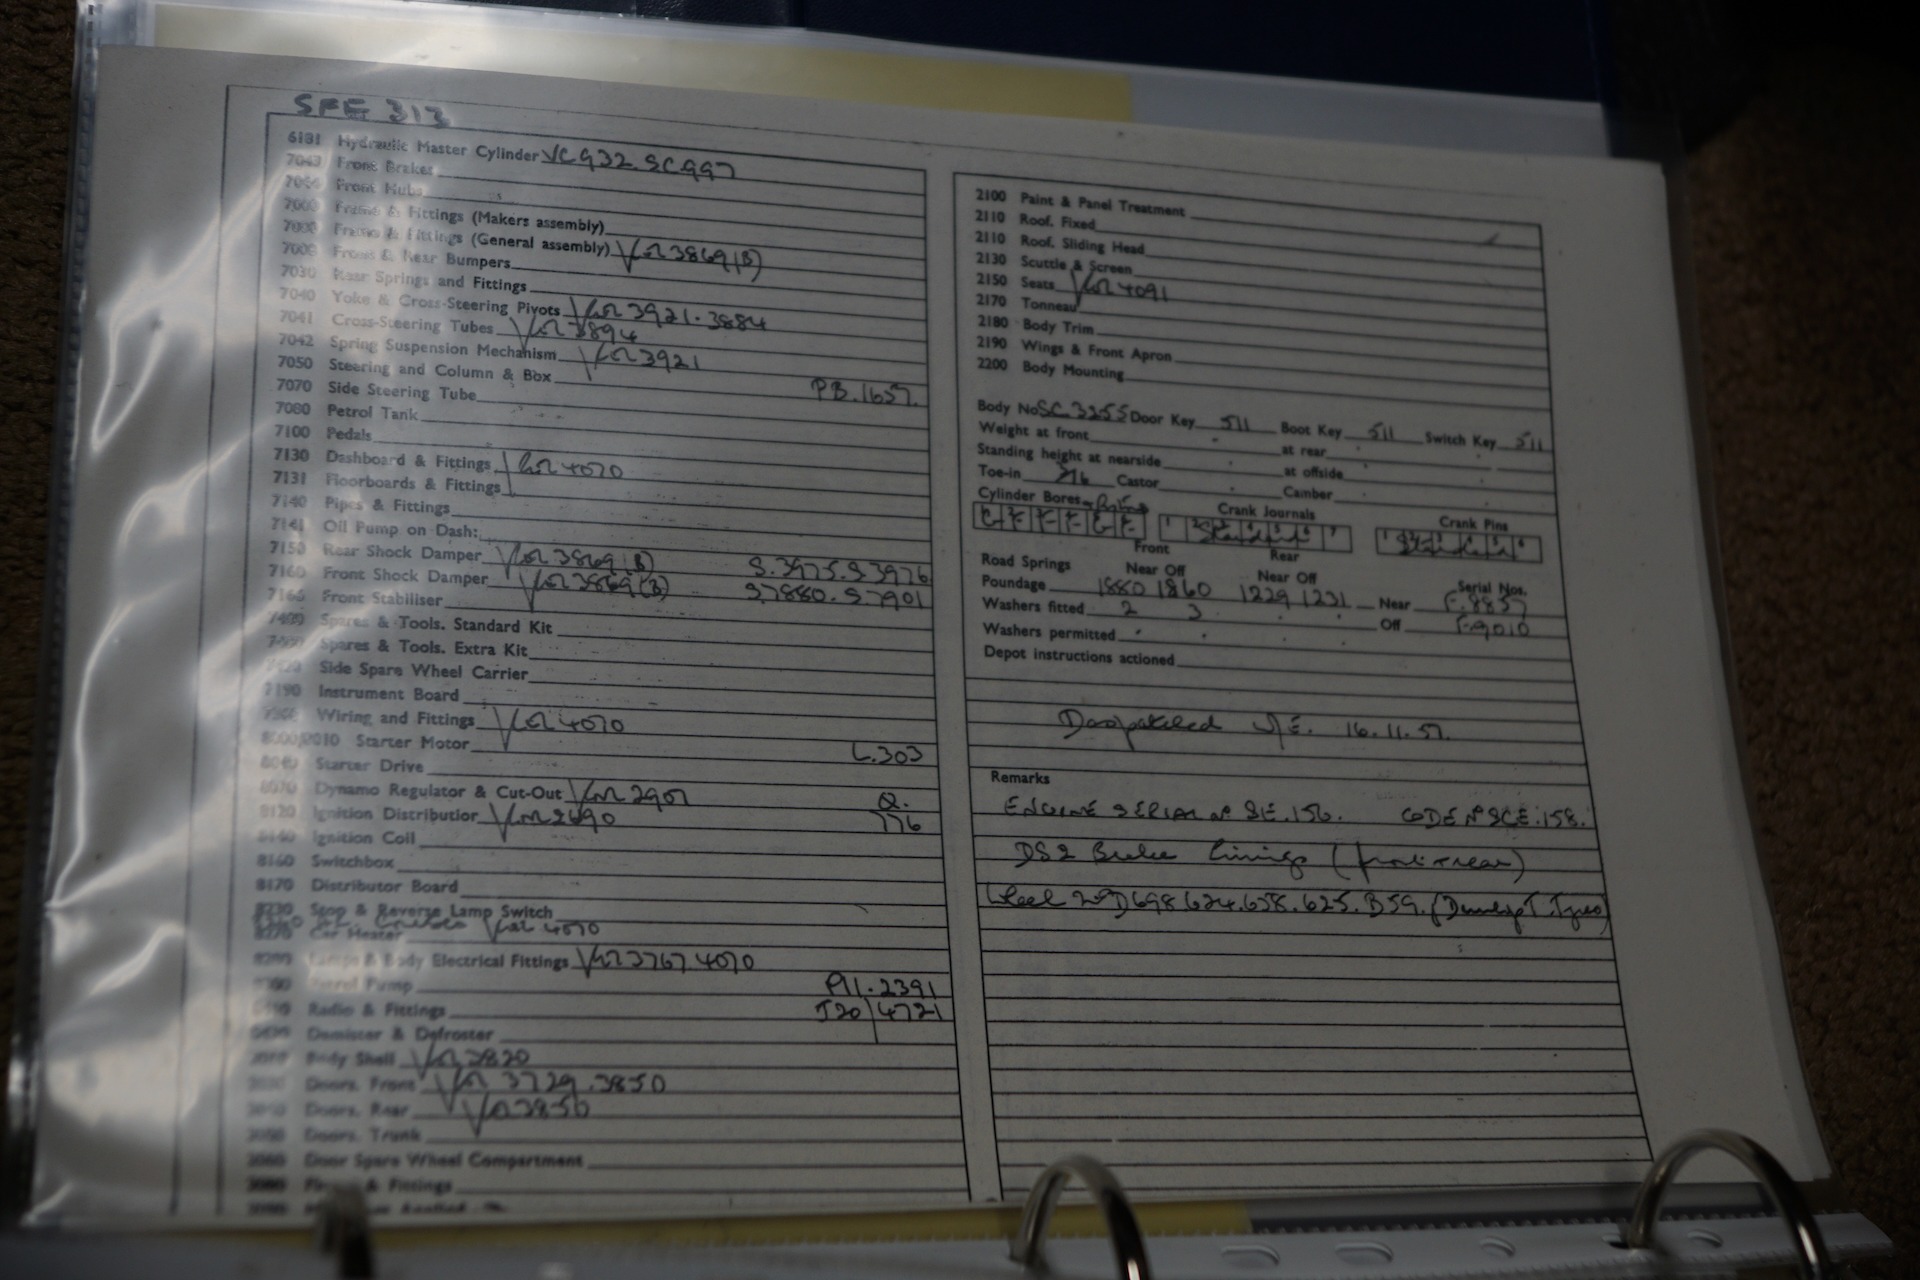 SFE 313
6181 Hydraulic Master Cylinder VC932. SC997
7043 Front Brakes
Front Hubs
7000 Frame & Fittings (Makers assembly)
7000 Frame & Fittings (General assembly) 3869(B)
7008 Front & Rear Bumpers
7030 Rear Springs and Fittings
7040 Yoke & Cross-Steering Pivots 3921. 3884
7041 Cross-Steering Tubes 3894
7042 Spring Suspension Mechanism 3921
7050 Steering and Column & Box PB. 1657.
7070 Side Steering Tube
7080 Petrol Tank
7100 Pedals
7130 Dashboard & Fittings 4070
7131 Floorboards & Fittings
7140 Pipes & Fittings
7141 Oil Pump on Dash:
7150 Rear Shock Damper 3869(B) S.3975. S3976
7160 Front Shock Damper 3869(B) S7880. S7901
7165 Front Stabiliser
7400 Spares & Tools. Standard Kit
Spares & Tools. Extra Kit
Side Spare Wheel Carrier
7190 Instrument Board
Wiring and Fittings 4070
8000/8010 Starter Motor L.303
8040 Starter Drive
8070 Dynamo Regulator & Cut-Out 2907 Q.
8120 Ignition Distributior 2690 776
8140 Ignition Coil
8160 Switchbox
8170 Distributor Board
8230 Stop & Reverse Lamp Switch
4070
8270 Car Heater
Lamps & Body Electrical Fittings 3767. 4070
Petrol Pump PL1. 2391
Radio & Fittings T20/4721
Demister & Defroster
Body Shell 3820
Doors. Front 3729. 3850
Doors. Rear 3850
Doors. Trunk
Door Spare Wheel Compartment
& Fittings
2100 Paint & Panel Treatment
2110 Roof. Fixed
2110 Roof. Sliding Head
2130 Scuttle & Screen
2150 Seats 4091
2170 Tonneau
2180 Body Trim
2190 Wings & Front Apron
2200 Body Mounting
Body No SC 3255 Door Key 511 Boot Key 511 Switch Key 511
Weight at front at rear
Standing height at nearside at offside
Toe-in Castor Camber
Cylinder Bores Crank Journals Crank Pins
Front Rear
Road Springs Near Off Near Off Serial Nos.
Poundage 1880 1860 1229 1231 Near F.8857
Washers fitted 2 3 Off F.9010
Washers permitted
Depot instructions actioned
Despatched W/E. 16.11.57.
Remarks
ENGINE SERIAL No SE.156. CODE No SCE.158.
DS2 Brake linings (front & rear)
Wheel Nos D698. 624. 658. 625. B59. (Dunlop T. Tyres)